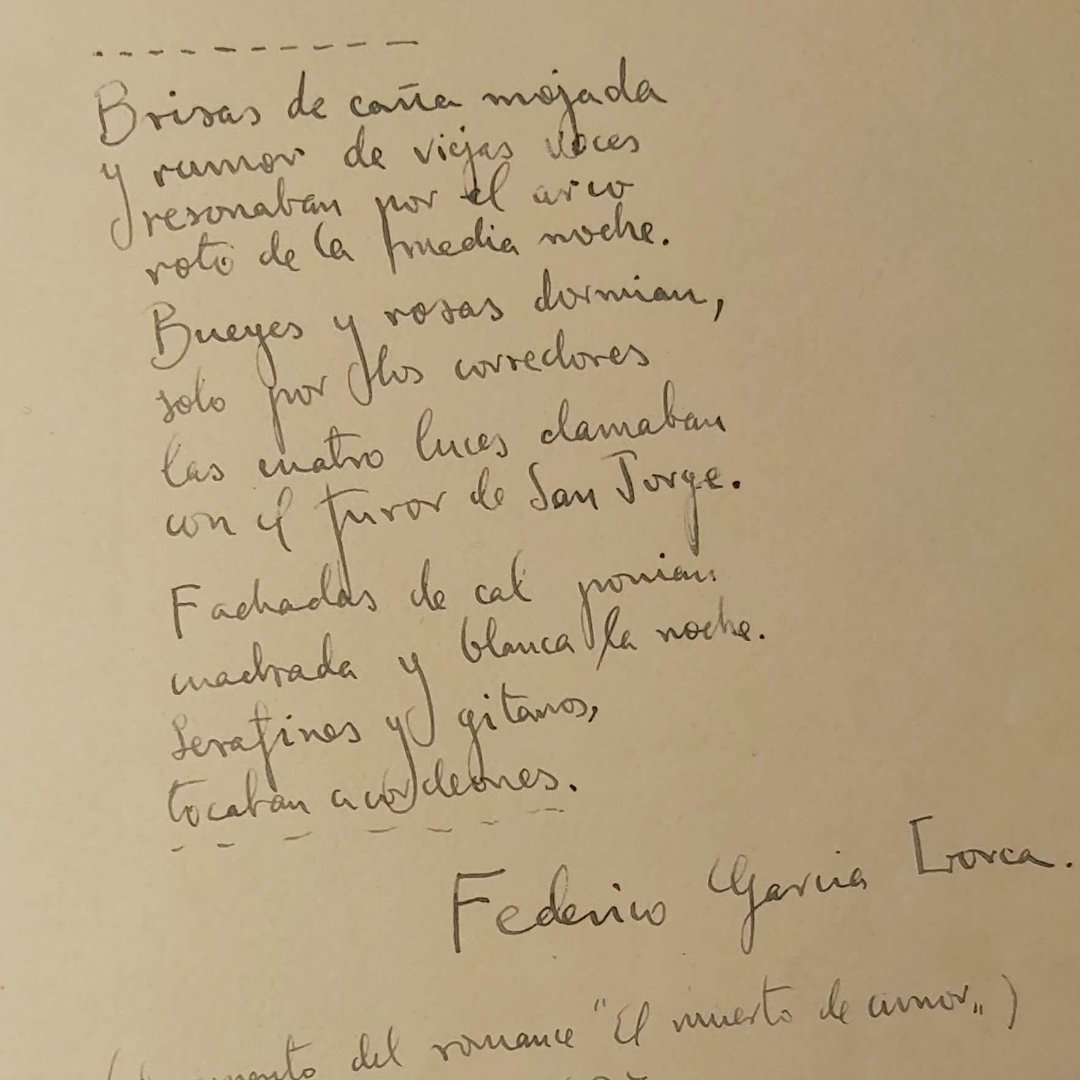 Brisas de caña mojada
y rumor de viejas voces
resonaban por el arco
roto de la media noche.
Bueyes y rosas dormian,
solo por los corredores
las cuatro luces clamaban
con el furor de San Jorge.
Fachadas de cal ponian
cuadrada y blanca la noche.
Serafines y gitanos,
tocaban acordeones.
Federico Garcia Lorca.
del romance "El muerto de amor„)